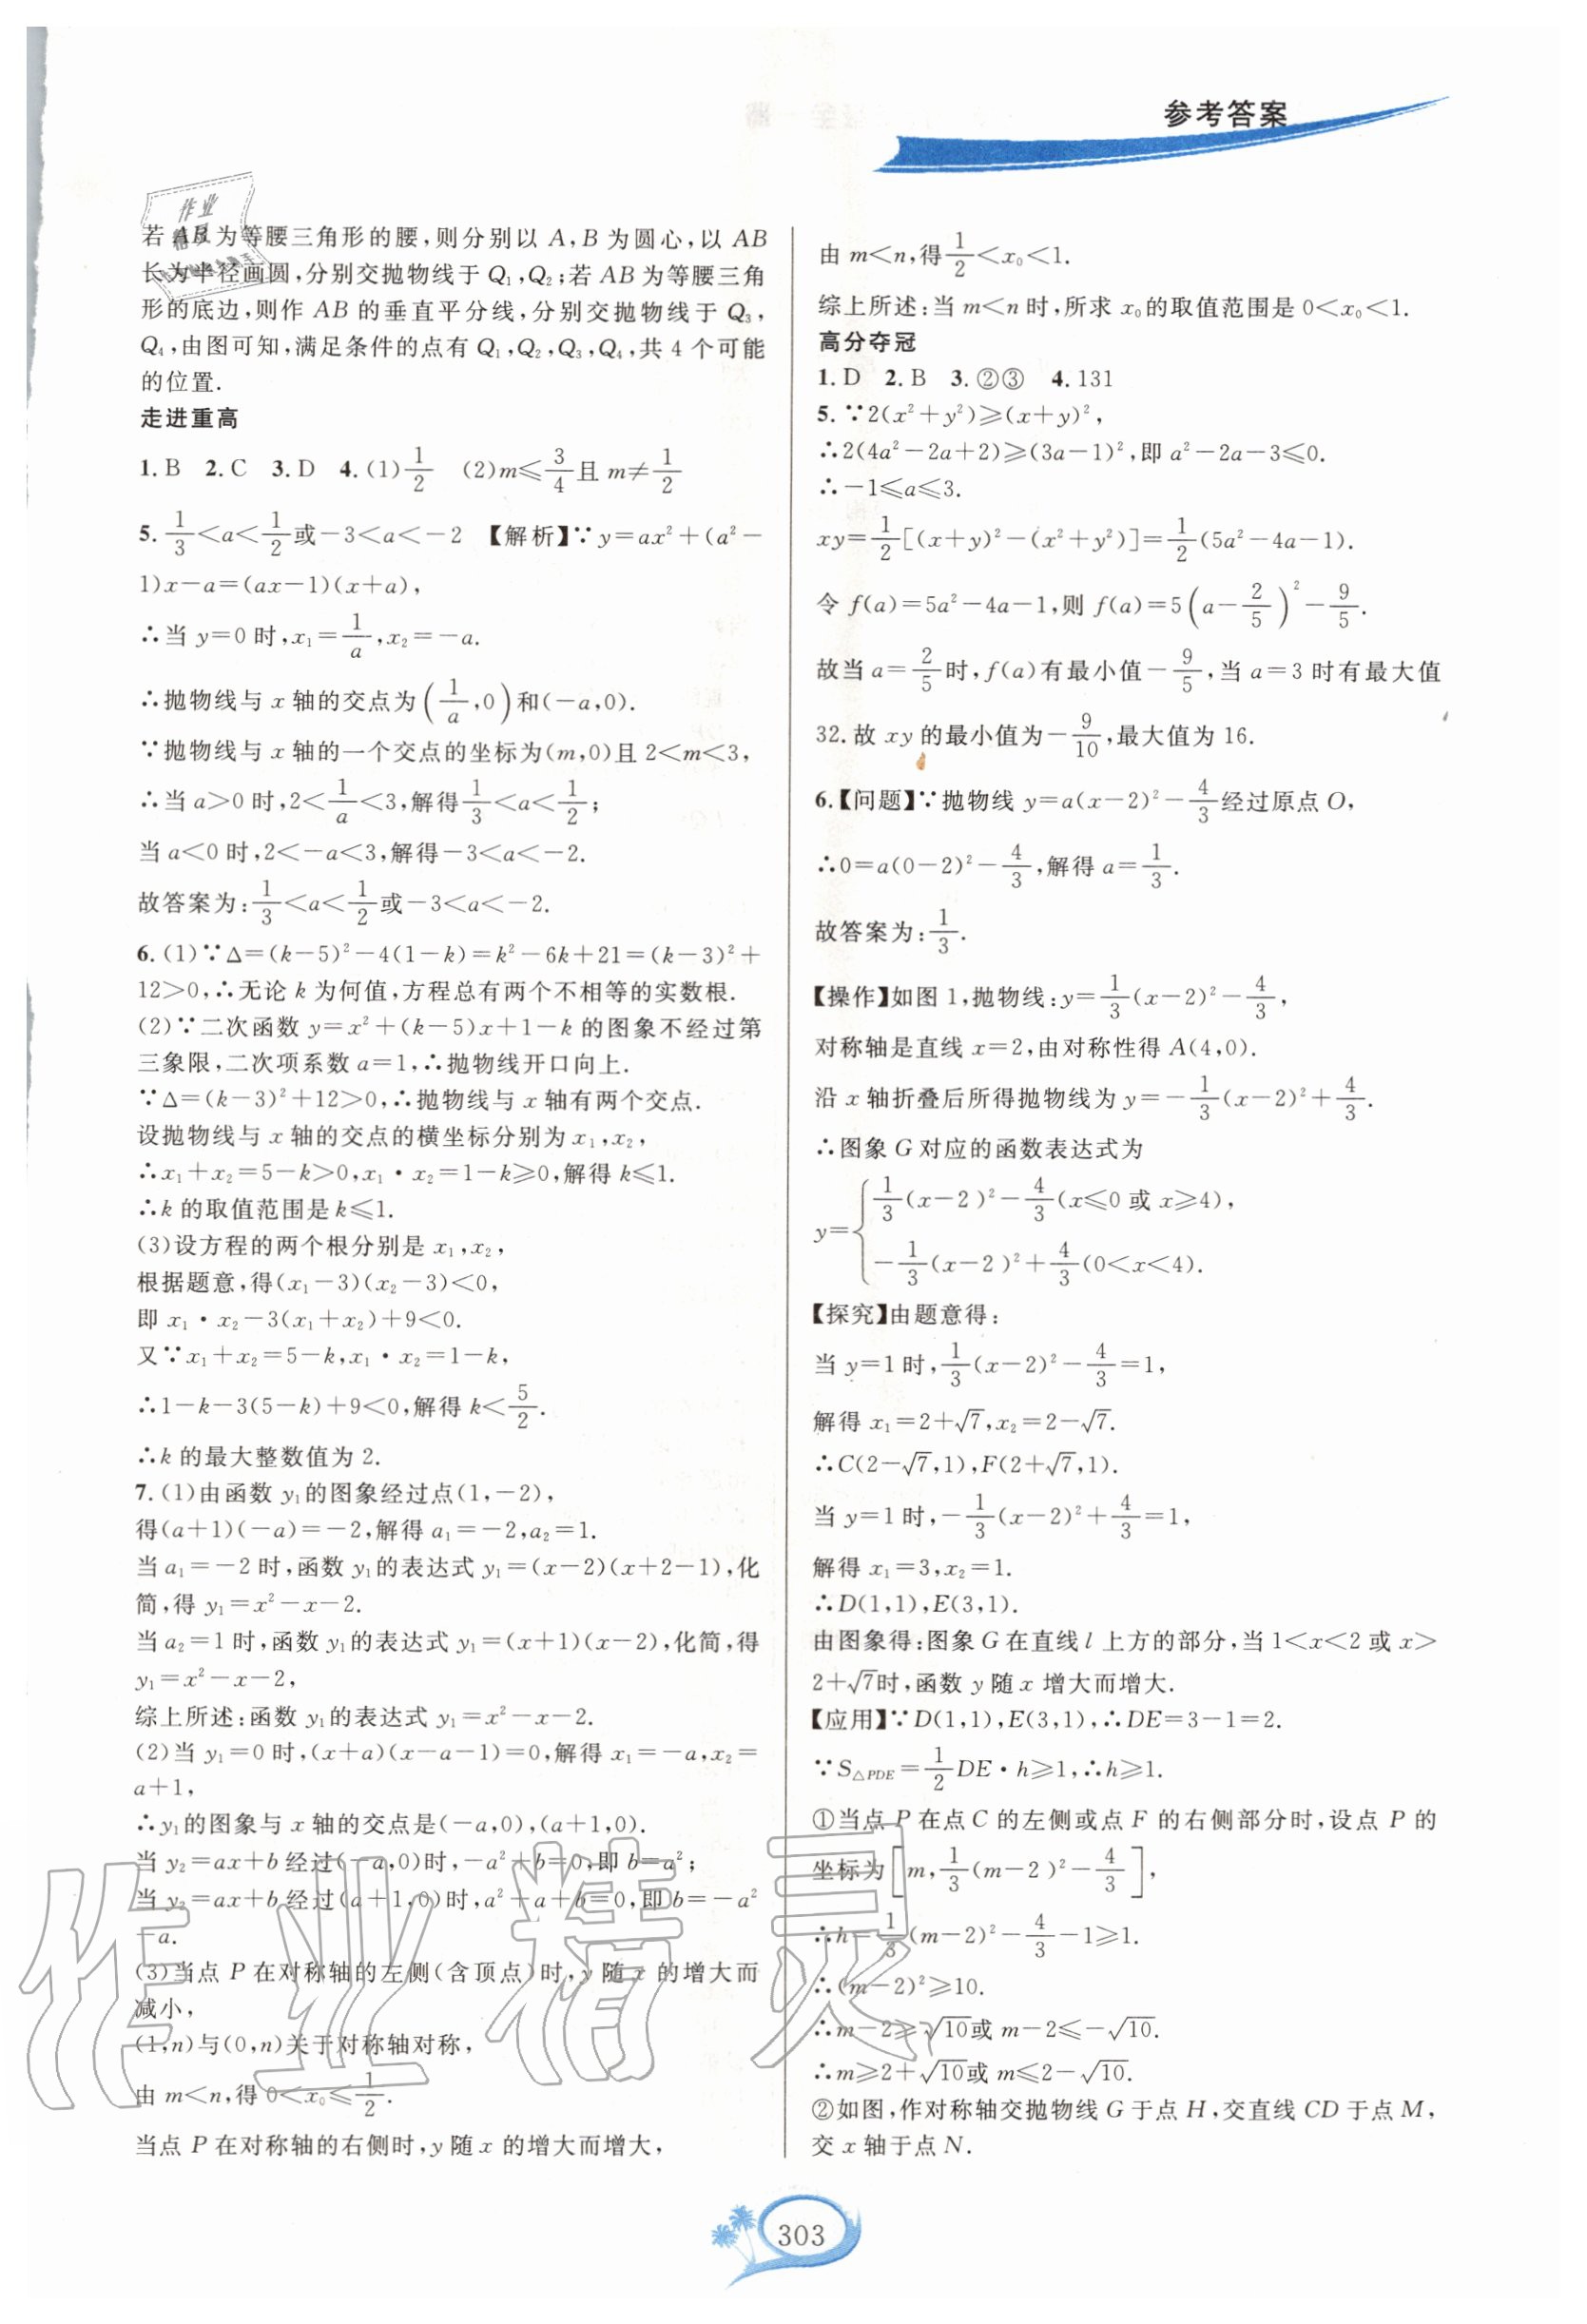 参考答案
若 AB 为等腰三角形的腰,则分别以 A,B 为圆心,以 AB
长为半径画圆,分别交抛物线于 Q₁,Q₂;若 AB 为等腰三角
形的底边,则作 AB 的垂直平分线,分别交抛物线于 Q₃,
Q₄,由图可知,满足条件的点有 Q₁,Q₂,Q₃,Q₄,共 4 个可能
的位置.
走进重高
1. B 2. C 3. D 4. (1) 1/2 (2) m≤3/4 且 m≠1/2
5. 1/3<a<1/2 或 -3<a<-2 【解析】∵y=ax²+(a²-
1)x-a=(ax-1)(x+a),
∴当 y=0 时,x₁=1/a,x₂=-a.
∴抛物线与 x 轴的交点为(1/a,0)和(-a,0).
∵抛物线与 x 轴的一个交点的坐标为(m,0)且 2<m<3,
∴当 a>0 时,2<1/a<3,解得 1/3<a<1/2;
当 a<0 时,2<-a<3,解得-3<a<-2.
故答案为:1/3<a<1/2 或-3<a<-2.
6. (1)∵Δ=(k-5)²-4(1-k)=k²-6k+21=(k-3)²+
12>0,∴无论 k 为何值,方程总有两个不相等的实数根.
(2)∵二次函数 y=x²+(k-5)x+1-k 的图象不经过第
三象限,二次项系数 a=1,∴抛物线开口向上.
∵Δ=(k-3)²+12>0,∴抛物线与 x 轴有两个交点.
设抛物线与 x 轴的交点的横坐标分别为 x₁,x₂,
∴x₁+x₂=5-k>0,x₁·x₂=1-k≥0,解得 k≤1.
∴k 的取值范围是 k≤1.
(3)设方程的两个根分别是 x₁,x₂,
根据题意,得(x₁-3)(x₂-3)<0,
即 x₁·x₂-3(x₁+x₂)+9<0.
又∵x₁+x₂=5-k,x₁·x₂=1-k,
∴1-k-3(5-k)+9<0,解得 k<5/2.
∴k 的最大整数值为 2.
7. (1)由函数 y₁的图象经过点(1,-2),
得(a+1)(-a)=-2,解得 a₁=-2,a₂=1.
当 a₁=-2 时,函数 y₁的表达式 y₁=(x-2)(x+2-1),化
简,得 y₁=x²-x-2.
当 a₂=1 时,函数 y₁的表达式 y₁=(x+1)(x-2),化简,得
y₁=x²-x-2,
综上所述:函数 y₁的表达式 y₁=x²-x-2.
(2)当 y₁=0 时,(x+a)(x-a-1)=0,解得 x₁=-a,x₂=
a+1,
∴y₁的图象与 x 轴的交点是(-a,0),(a+1,0).
当 y₂=ax+b 经过(-a,0)时,-a²+b=0,即 b=a²;
当 y₂=ax+b 经过(a+1,0)时,a²+a+b=0,即 b=-a²
-a.
(3)当点 P 在对称轴的左侧(含顶点)时,y 随 x 的增大而
减小,
(1,n)与(0,n)关于对称轴对称,
由 m<n,得 0<x₀≤1/2.
当点 P 在对称轴的右侧时,y 随 x 的增大而增大,
由 m<n,得 1/2<x₀<1.
综上所述:当 m<n 时,所求 x₀的取值范围是 0<x₀<1.
高分夺冠
1. D 2. B 3. ②③ 4. 131
5. ∵2(x²+y²)≥(x+y)²,
∴2(4a²-2a+2)≥(3a-1)²,即 a²-2a-3≤0.
∴-1≤a≤3.
xy=1/2[(x+y)²-(x²+y²)]=1/2(5a²-4a-1).
令 f(a)=5a²-4a-1,则 f(a)=5(a-2/5)²-9/5.
故当 a=2/5 时,f(a)有最小值-9/5,当 a=3 时有最大值
32.故 xy 的最小值为-9/10,最大值为 16.
6.【问题】∵抛物线 y=a(x-2)²-4/3 经过原点 O,
∴0=a(0-2)²-4/3,解得 a=1/3.
故答案为:1/3.
【操作】如图 1,抛物线:y=1/3(x-2)²-4/3,
对称轴是直线 x=2,由对称性得 A(4,0).
沿 x 轴折叠后所得抛物线为 y=-1/3(x-2)²+4/3.
∴图象 G 对应的函数表达式为
y={1/3(x-2)²-4/3(x≤0 或 x≥4),
-1/3(x-2)²+4/3(0<x<4).
【探究】由题意得:
当 y=1 时,1/3(x-2)²-4/3=1,
解得 x₁=2+√7,x₂=2-√7.
∴C(2-√7,1),F(2+√7,1).
当 y=1 时,-1/3(x-2)²+4/3=1,
解得 x₁=3,x₂=1.
∴D(1,1),E(3,1).
由图象得:图象 G 在直线 l 上方的部分,当 1<x<2 或 x>
2+√7时,函数 y 随 x 增大而增大.
【应用】∵D(1,1),E(3,1),∴DE=3-1=2.
∵S△PDE=1/2 DE·h≥1,∴h≥1.
①当点 P 在点 C 的左侧或点 F 的右侧部分时,设点 P 的
坐标为[m,1/3(m-2)²-4/3],
∴h=1/3(m-2)²-4/3-1≥1.
∴(m-2)²≥10.
∴m-2≥√10或 m-2≤-√10.
∴m≥2+√10或 m≤2-√10.
②如图,作对称轴交抛物线 G 于点 H,交直线 CD 于点 M,
交 x 轴于点 N.
303
作业精灵